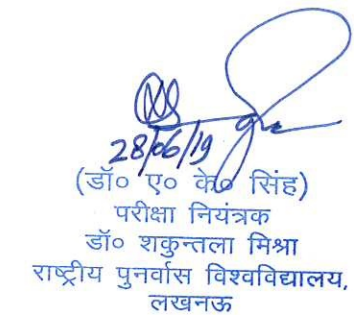 28/06/19
(डॉ० ए० के० सिंह)
परीक्षा नियंत्रक
डॉ० शकुन्तला मिश्रा
राष्ट्रीय पुनर्वास विश्वविद्यालय,
लखनऊ